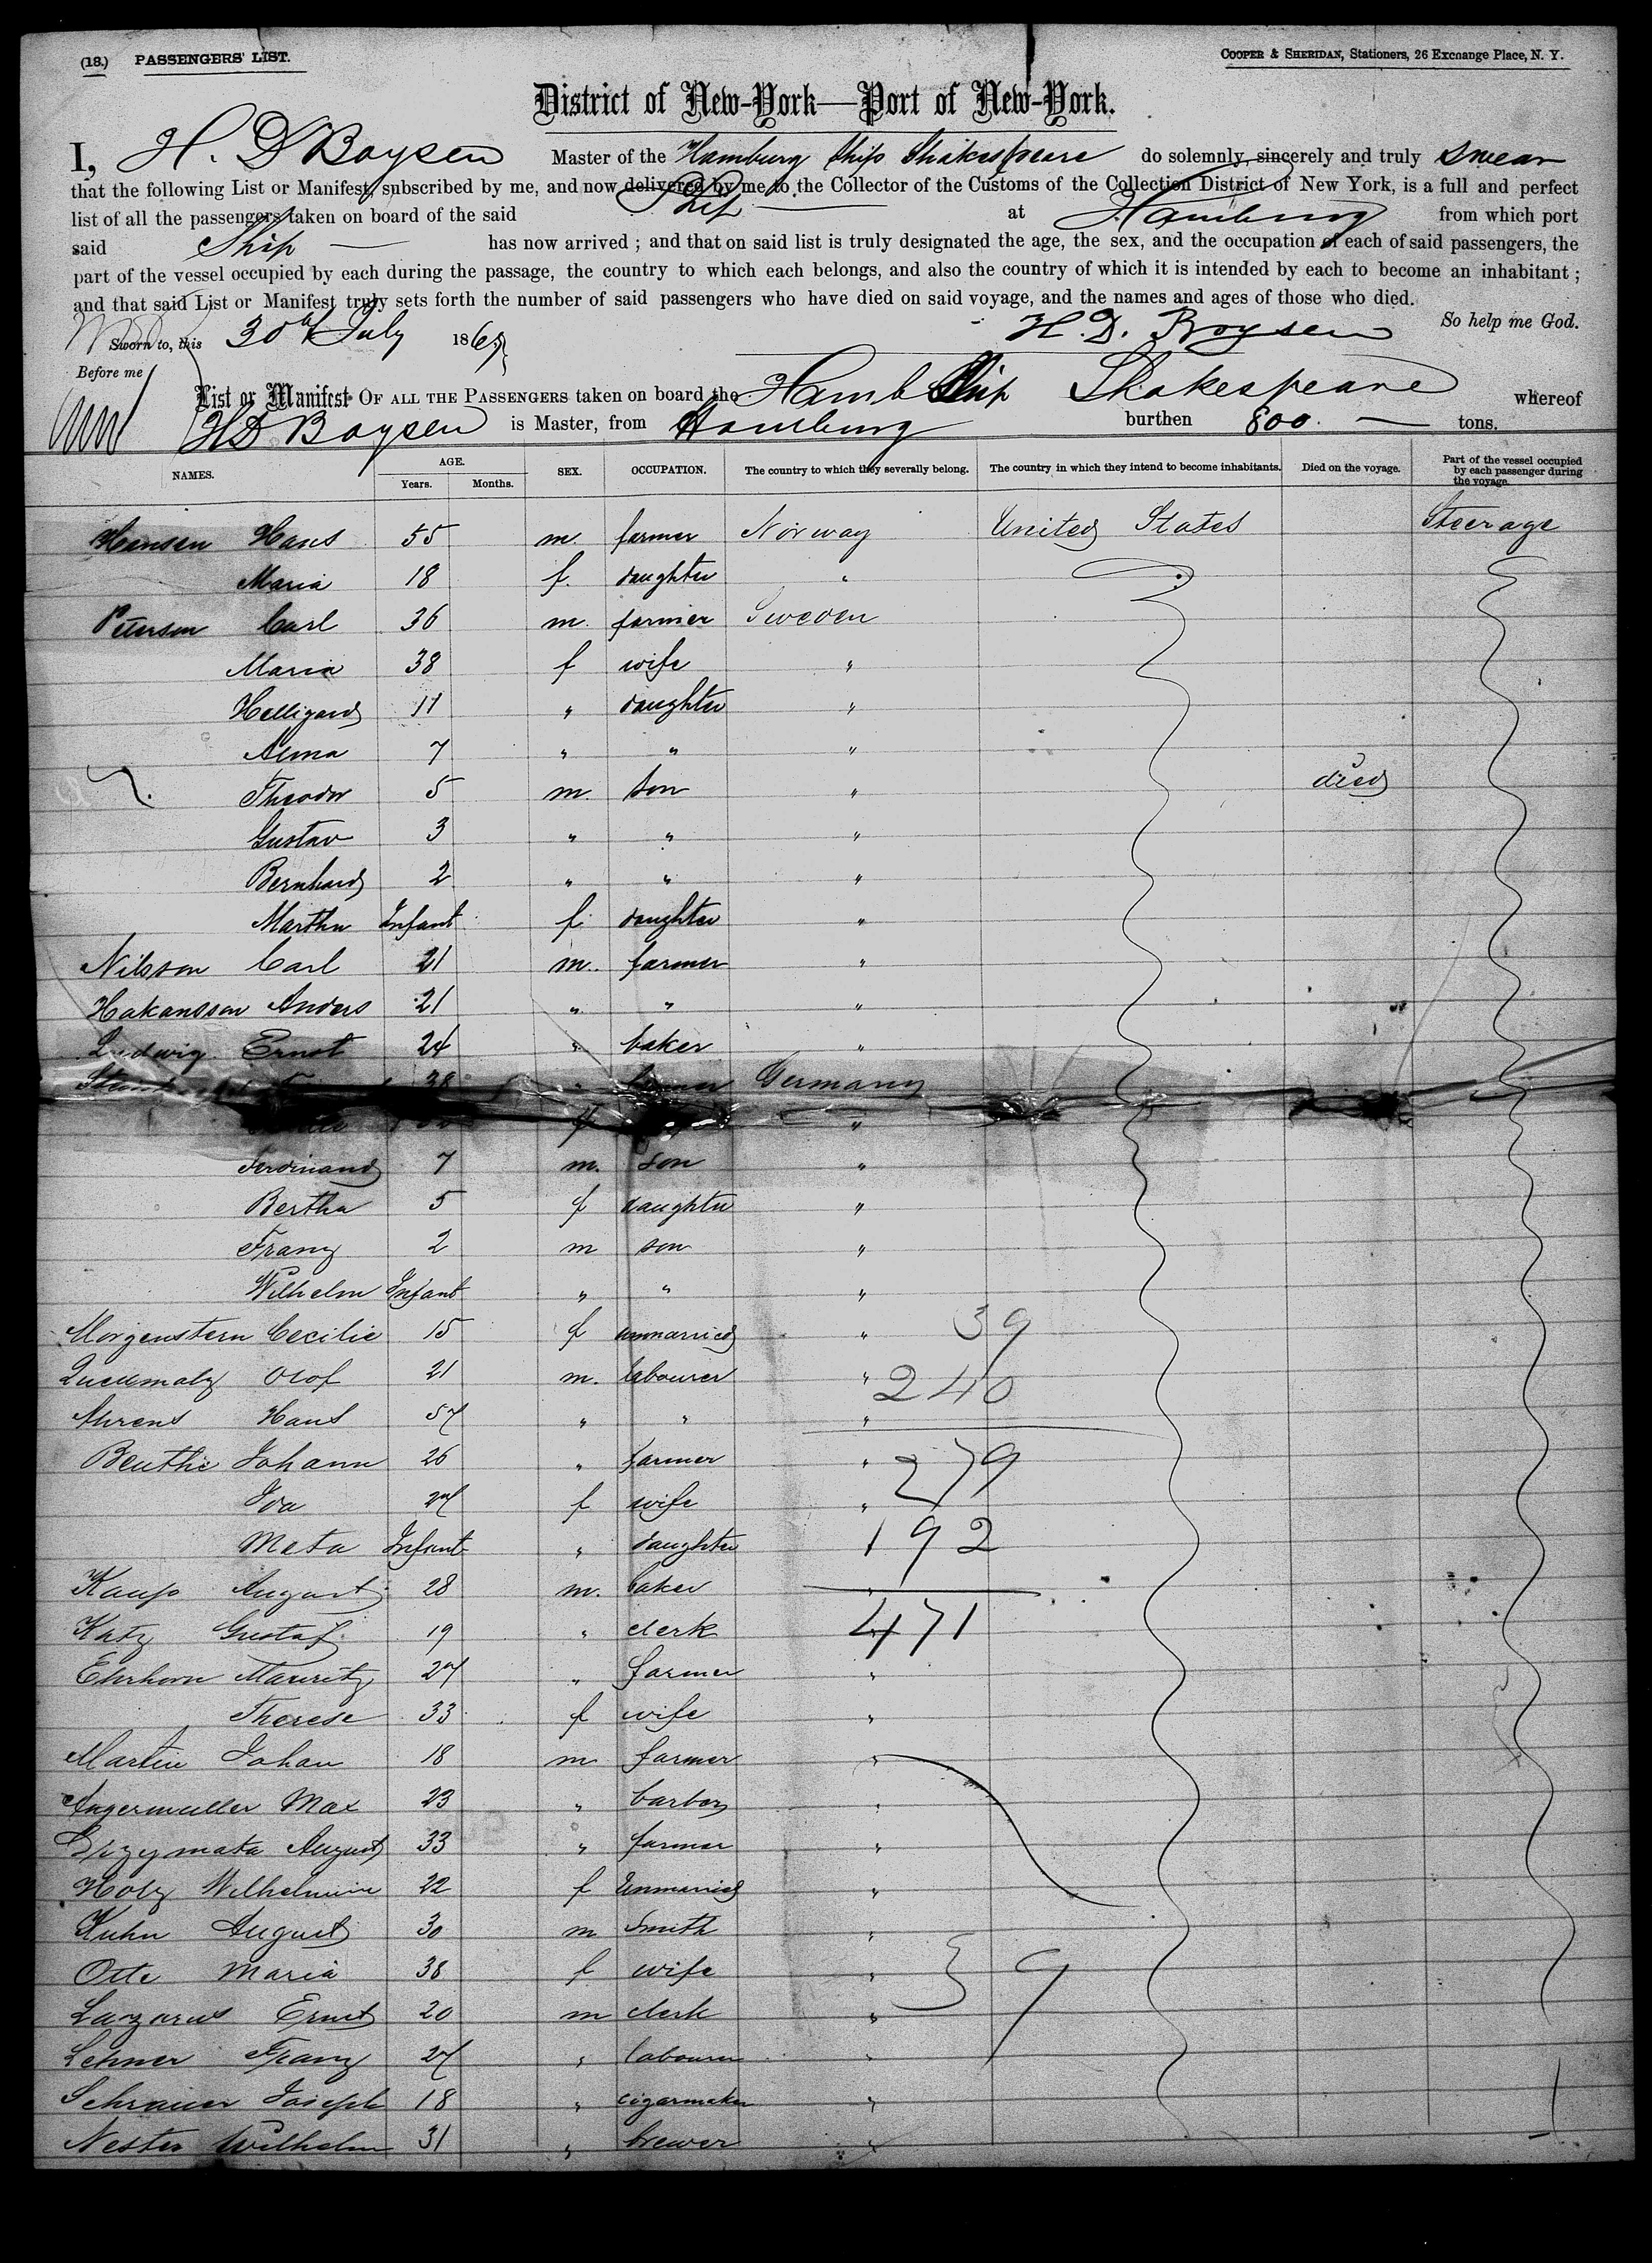 (18.) PASSENGERS' LIST.
COOPER & SHERIDAN, Stationers, 26 Exchange Place, N. Y.
District of New-York—Port of New-York.
I, H. D Boysen Master of the Hamburg Ship Shakespeare do solemnly, sincerely and truly swear
that the following List or Manifest, subscribed by me, and now delivered by me to the Collector of the Customs of the Collection District of New York, is a full and perfect
list of all the passengers taken on board of the said Ship at Hamburg from which port
said Ship has now arrived ; and that on said list is truly designated the age, the sex, and the occupation of each of said passengers, the
part of the vessel occupied by each during the passage, the country to which each belongs, and also the country of which it is intended by each to become an inhabitant ;
and that said List or Manifest truly sets forth the number of said passengers who have died on said voyage, and the names and ages of those who died.
So help me God.
Sworn to, this 30th July 186 H. D. Boysen
Before me
List or Manifest OF ALL THE PASSENGERS taken on board the Hamb Ship Shakespeare whereof
HD Boysen is Master, from Hamburg burthen 800. — tons.
NAMES. AGE. Years. Months. SEX. OCCUPATION. The country to which they severally belong. The country in which they intend to become inhabitants. Died on the voyage. Part of the vessel occupied by each passenger during the voyage.
Hansen Hans 55 m. farmer Norway United States Steerage
Maria 18 f. daughter "
Peterson Carl 36 m. farmer Sweden
Maria 38 f wife "
Helligard 11 " daughter "
Alma 7 " " "
Theodor 5 m. son " died
Gustav 3 " " "
Bernhard 2 " " "
Martha Infant f. daughter "
Nilsson Carl 21 m. farmer "
Hakansson Anders 21 " " "
Ludwig Ernst 24 " baker "
38 " farmer Germany
f "
Ferdinand 7 m. son "
Bertha 5 f daughter "
Franz 2 m son "
Wilhelm Infant " " "
Morgenstern Cecilie 15 f unmarried " 39
Olof 21 m. labourer " 240
Ahrens Hans 57 " " "
Beuthe Johann 26 " farmer " 279
Ida 27 f wife "
Meta Infant " daughter 192
Kaup August 28 m. baker "
Katz Gustaf 19 " clerk 471
Ehrhorn Mauritz 27 " farmer "
Therese 33 f wife "
Martin Johan 18 m farmer "
Angermuller Max 23 " barber "
August 33 " farmer "
Holz Wilhelmine 22 f Unmarried "
Kuhn August 30 m smith "
Otte Maria 38 f wife " 39
Lazarus Ernst 20 m clerk "
Lehner Franz 27 " labourer "
Schrauer Joseph 18 " cigarmaker "
Nester Wilhelm 31 " brewer "